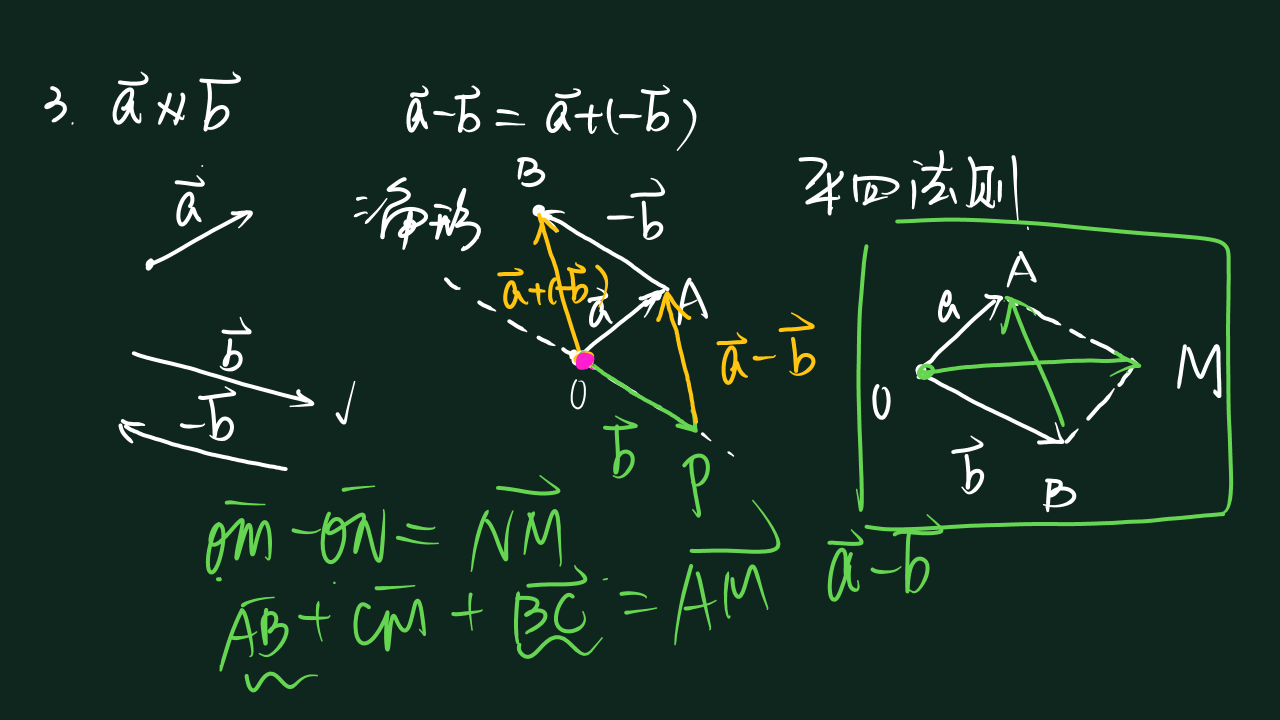 3. a⃗ ∦ b⃗
a⃗ - b⃗ = a⃗ + (-b⃗)
a⃗
b⃗
-b⃗
三角形
B
-b⃗
a⃗+(-b⃗)
a⃗
A
O
b⃗
P
a⃗ - b⃗
平四法则
A
a
O
M
b⃗
B
a⃗ - b⃗
OM - ON = NM⃗
AB + CM + BC⃗ = AM⃗